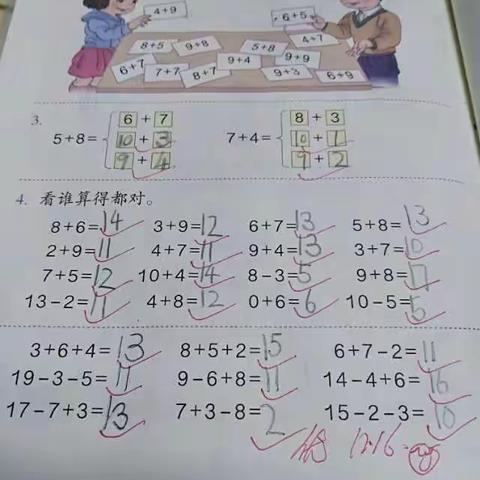 4+9 6+5
8+5 9+8 5+8 4+7
6+7 7+7 8+7 9+4 9+9 9+3 6+9
3.
6+7 8+3
5+8= 10+3 7+4= 10+1
9+4 9+2
4. 看谁算得都对。
8+6=14 3+9=12 6+7=13 5+8=13
2+9=11 4+7=11 9+4=13 3+7=10
7+5=12 10+4=14 8-3=5 9+8=17
13-2=11 4+8=12 0+6=6 10-5=5
3+6+4=13 8+5+2=15 6+7-2=11
19-3-5=11 9-6+8=11 14-4+6=16
17-7+3=13 7+3-8=2 15-2-3=10
12.16